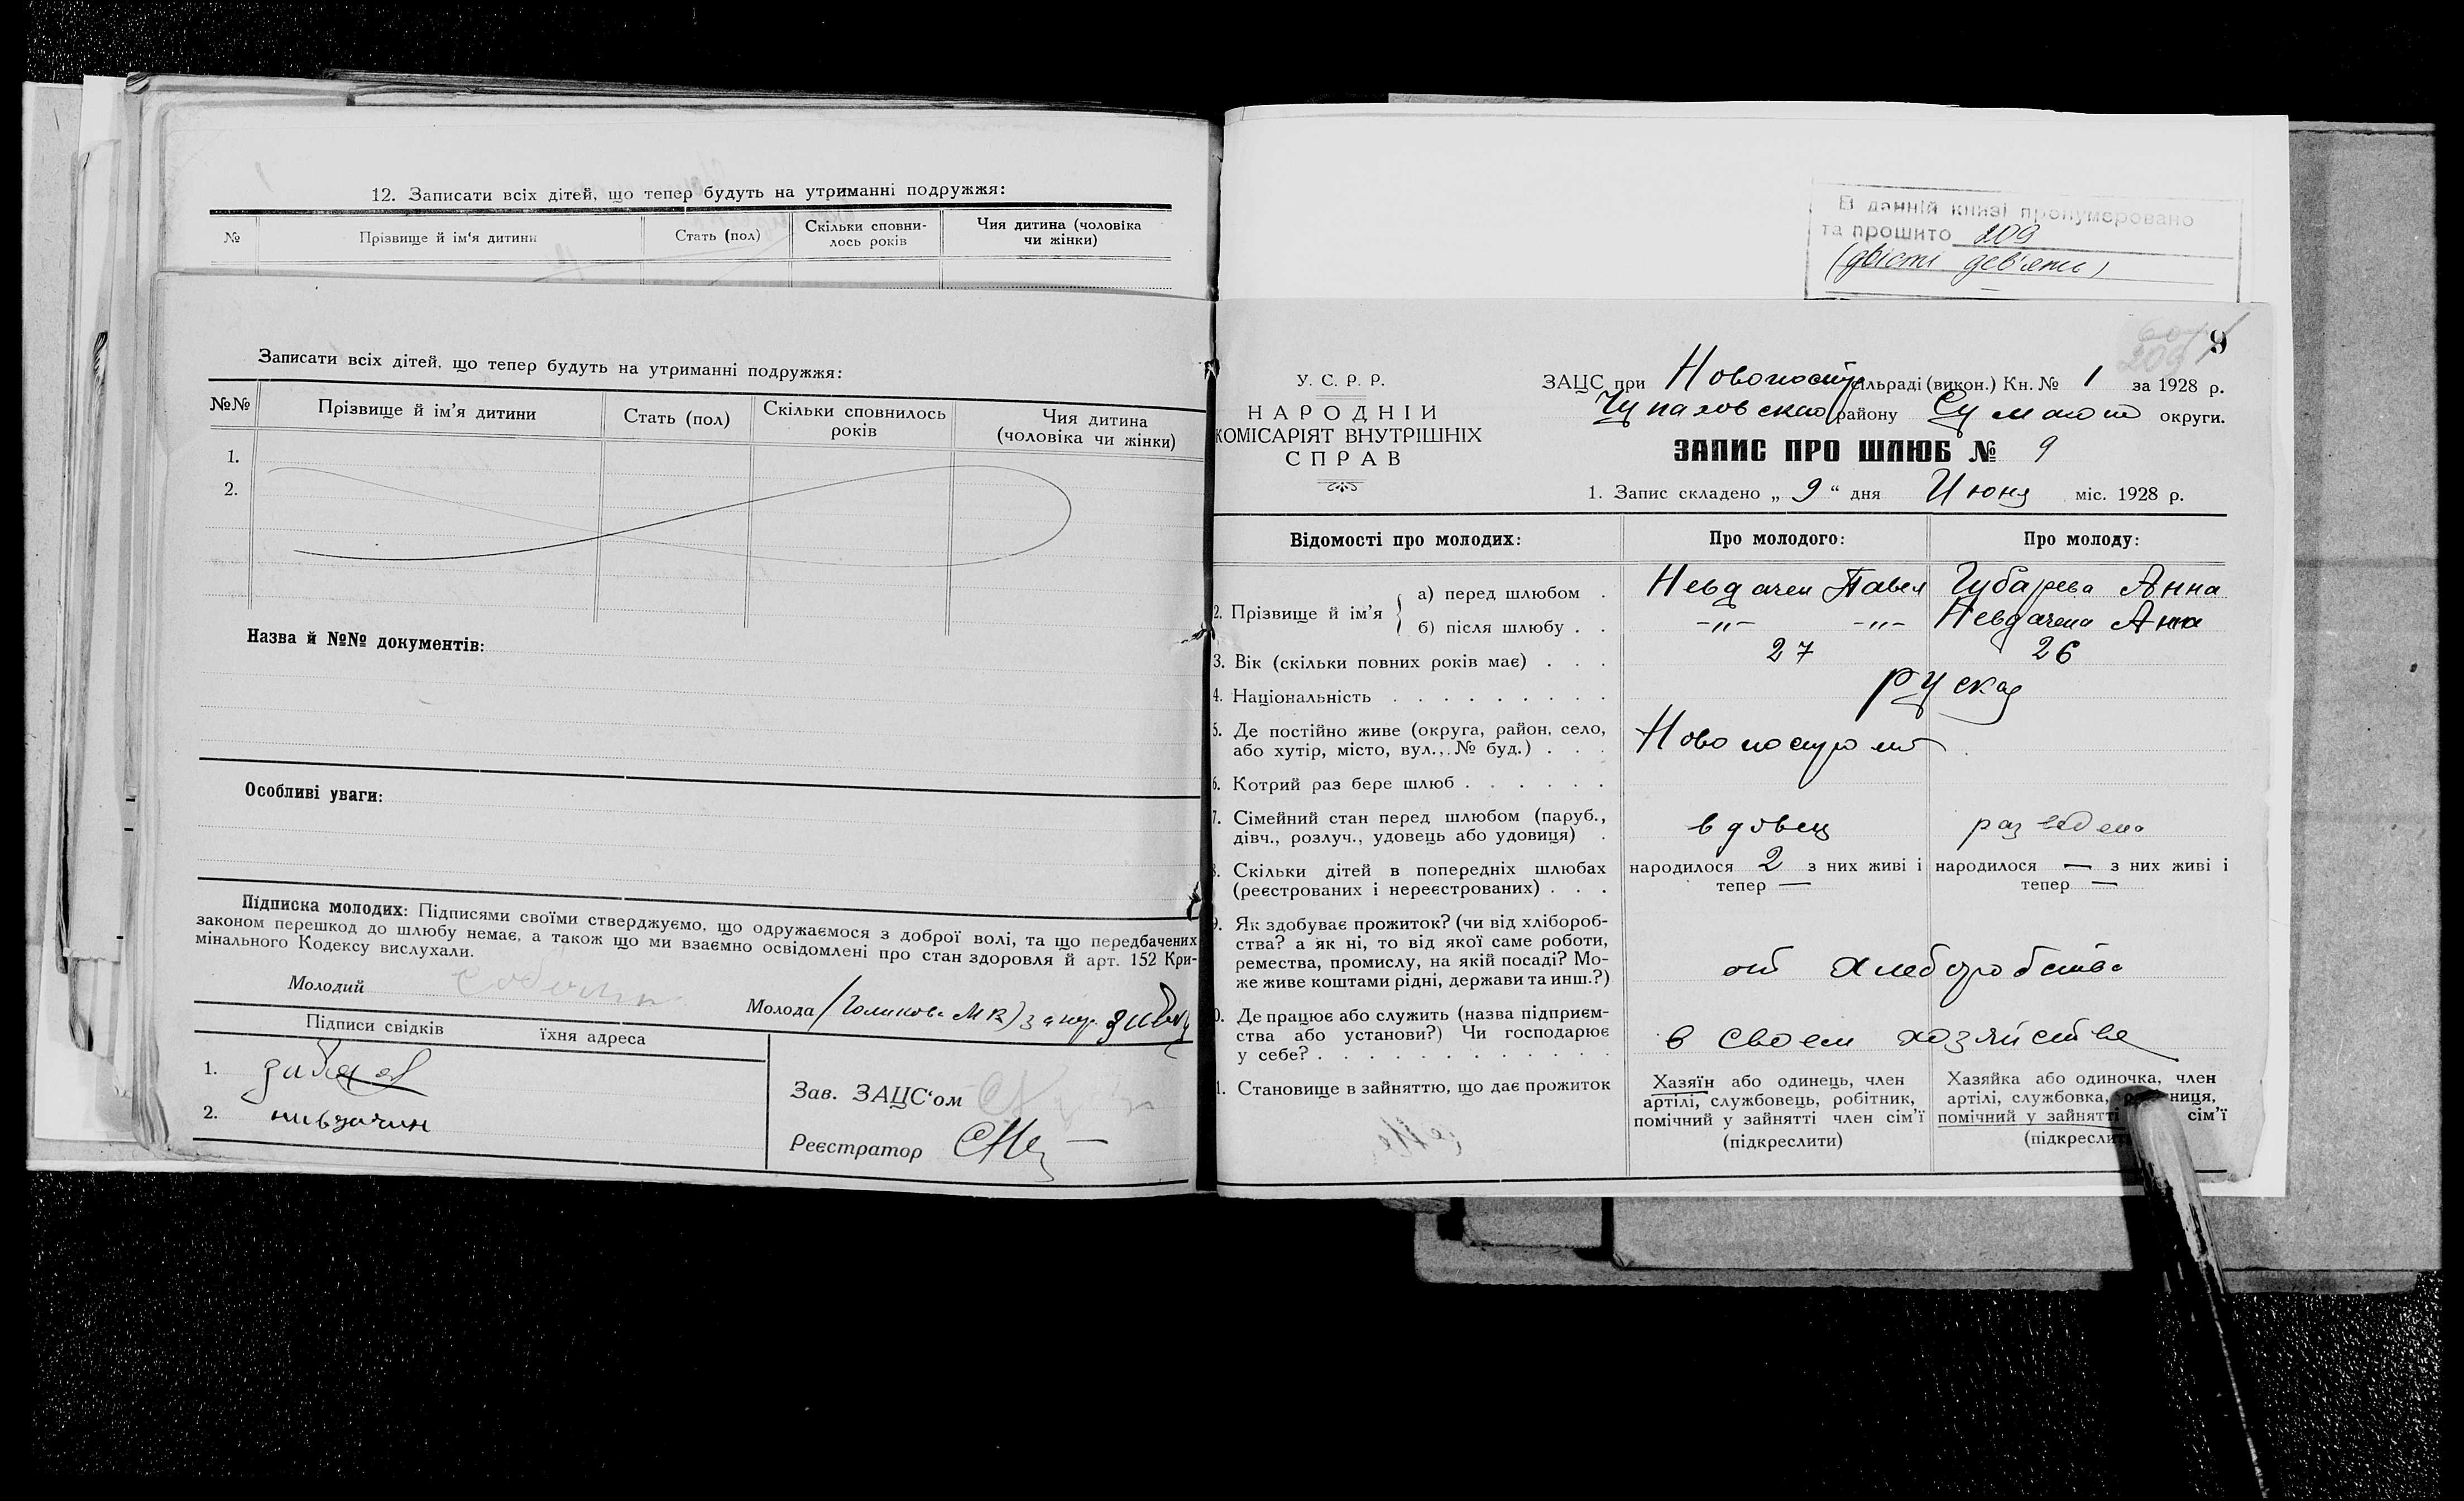 12. Записати всіх дітей, що тепер будуть на утриманні подружжя:
№ Прізвище й ім'я дитини Стать (пол) Скільки сповни-лось років Чия дитина (чоловіка чи жінки)
Записати всіх дітей, що тепер будуть на утриманні подружжя:
№№ Прізвище й ім'я дитини Стать (пол) Скільки сповнилось років Чия дитина (чоловіка чи жінки)
1.
2.
Назва й №№ документів:
Особливі уваги:
Підписка молодих: Підписями своїми стверджуємо, що одружаємося з доброї волі, та що передбачених
законом перешкод до шлюбу немає, а також що ми взаємно освідомлені про стан здоровля й арт. 152 Кри-
мінального Кодексу вислухали.
Молодий
Молода
Підписи свідків їхня адреса
1.
2. нивдачин
Зав. ЗАЦС'ом
Реєстратор
В данній книзі пронумеровано
та прошито 209
(двісті дев'ять)
9
У. С. Р. Р.
НАРОДНІЙ
КОМІСАРІЯТ ВНУТРІШНІХ
СПРАВ
ЗАЦС при сільраді (викон.) Кн. № 1 за 1928 р.
району округи.
ЗАПИС ПРО ШЛЮБ № 9
1. Запис складено „ 9 “ дня Июня міс. 1928 р.
Відомості про молодих: Про молодого: Про молоду:
2. Прізвище й ім'я
а) перед шлюбом . Невдачен Павел Губарева Анна
б) після шлюбу . . -"- -"- Невдачена Анна
3. Вік (скільки повних років має) . . . 27 26
4. Національність . . . . . . . . . руская
5. Де постійно живе (округа, район, село,
або хутір, місто, вул... № буд.) . . .
6. Котрий раз бере шлюб . . . . . .
7. Сімейний стан перед шлюбом (паруб.,
дівч., розлуч., удовець або удовиця) . вдовец разведена
8. Скільки дітей в попередніх шлюбах
(реєстрованих і нереєстрованих) . . .
народилося 2 з них живі і
тепер —
народилося — з них живі і
тепер —
9. Як здобуває прожиток? (чи від хлібороб-
ства? а як ні, то від якої саме роботи,
ремества, промислу, на якій посаді? Мо-
же живе коштами рідні, держави та инш.?)
от хлеборобства
10. Де працює або служить (назва підприєм-
ства або установи?) Чи господарює
у себе? . . . . . . . . . . . .
в своем хозяйстве
11. Становище в зайняттю, що дає прожиток
Хазяїн або одинець, член
артілі, службовець, робітник,
помічний у зайнятті член сім'ї
(підкреслити)
Хазяйка або одиночка, член
артілі, службовка, ниця,
помічний у зайнятті сім'ї